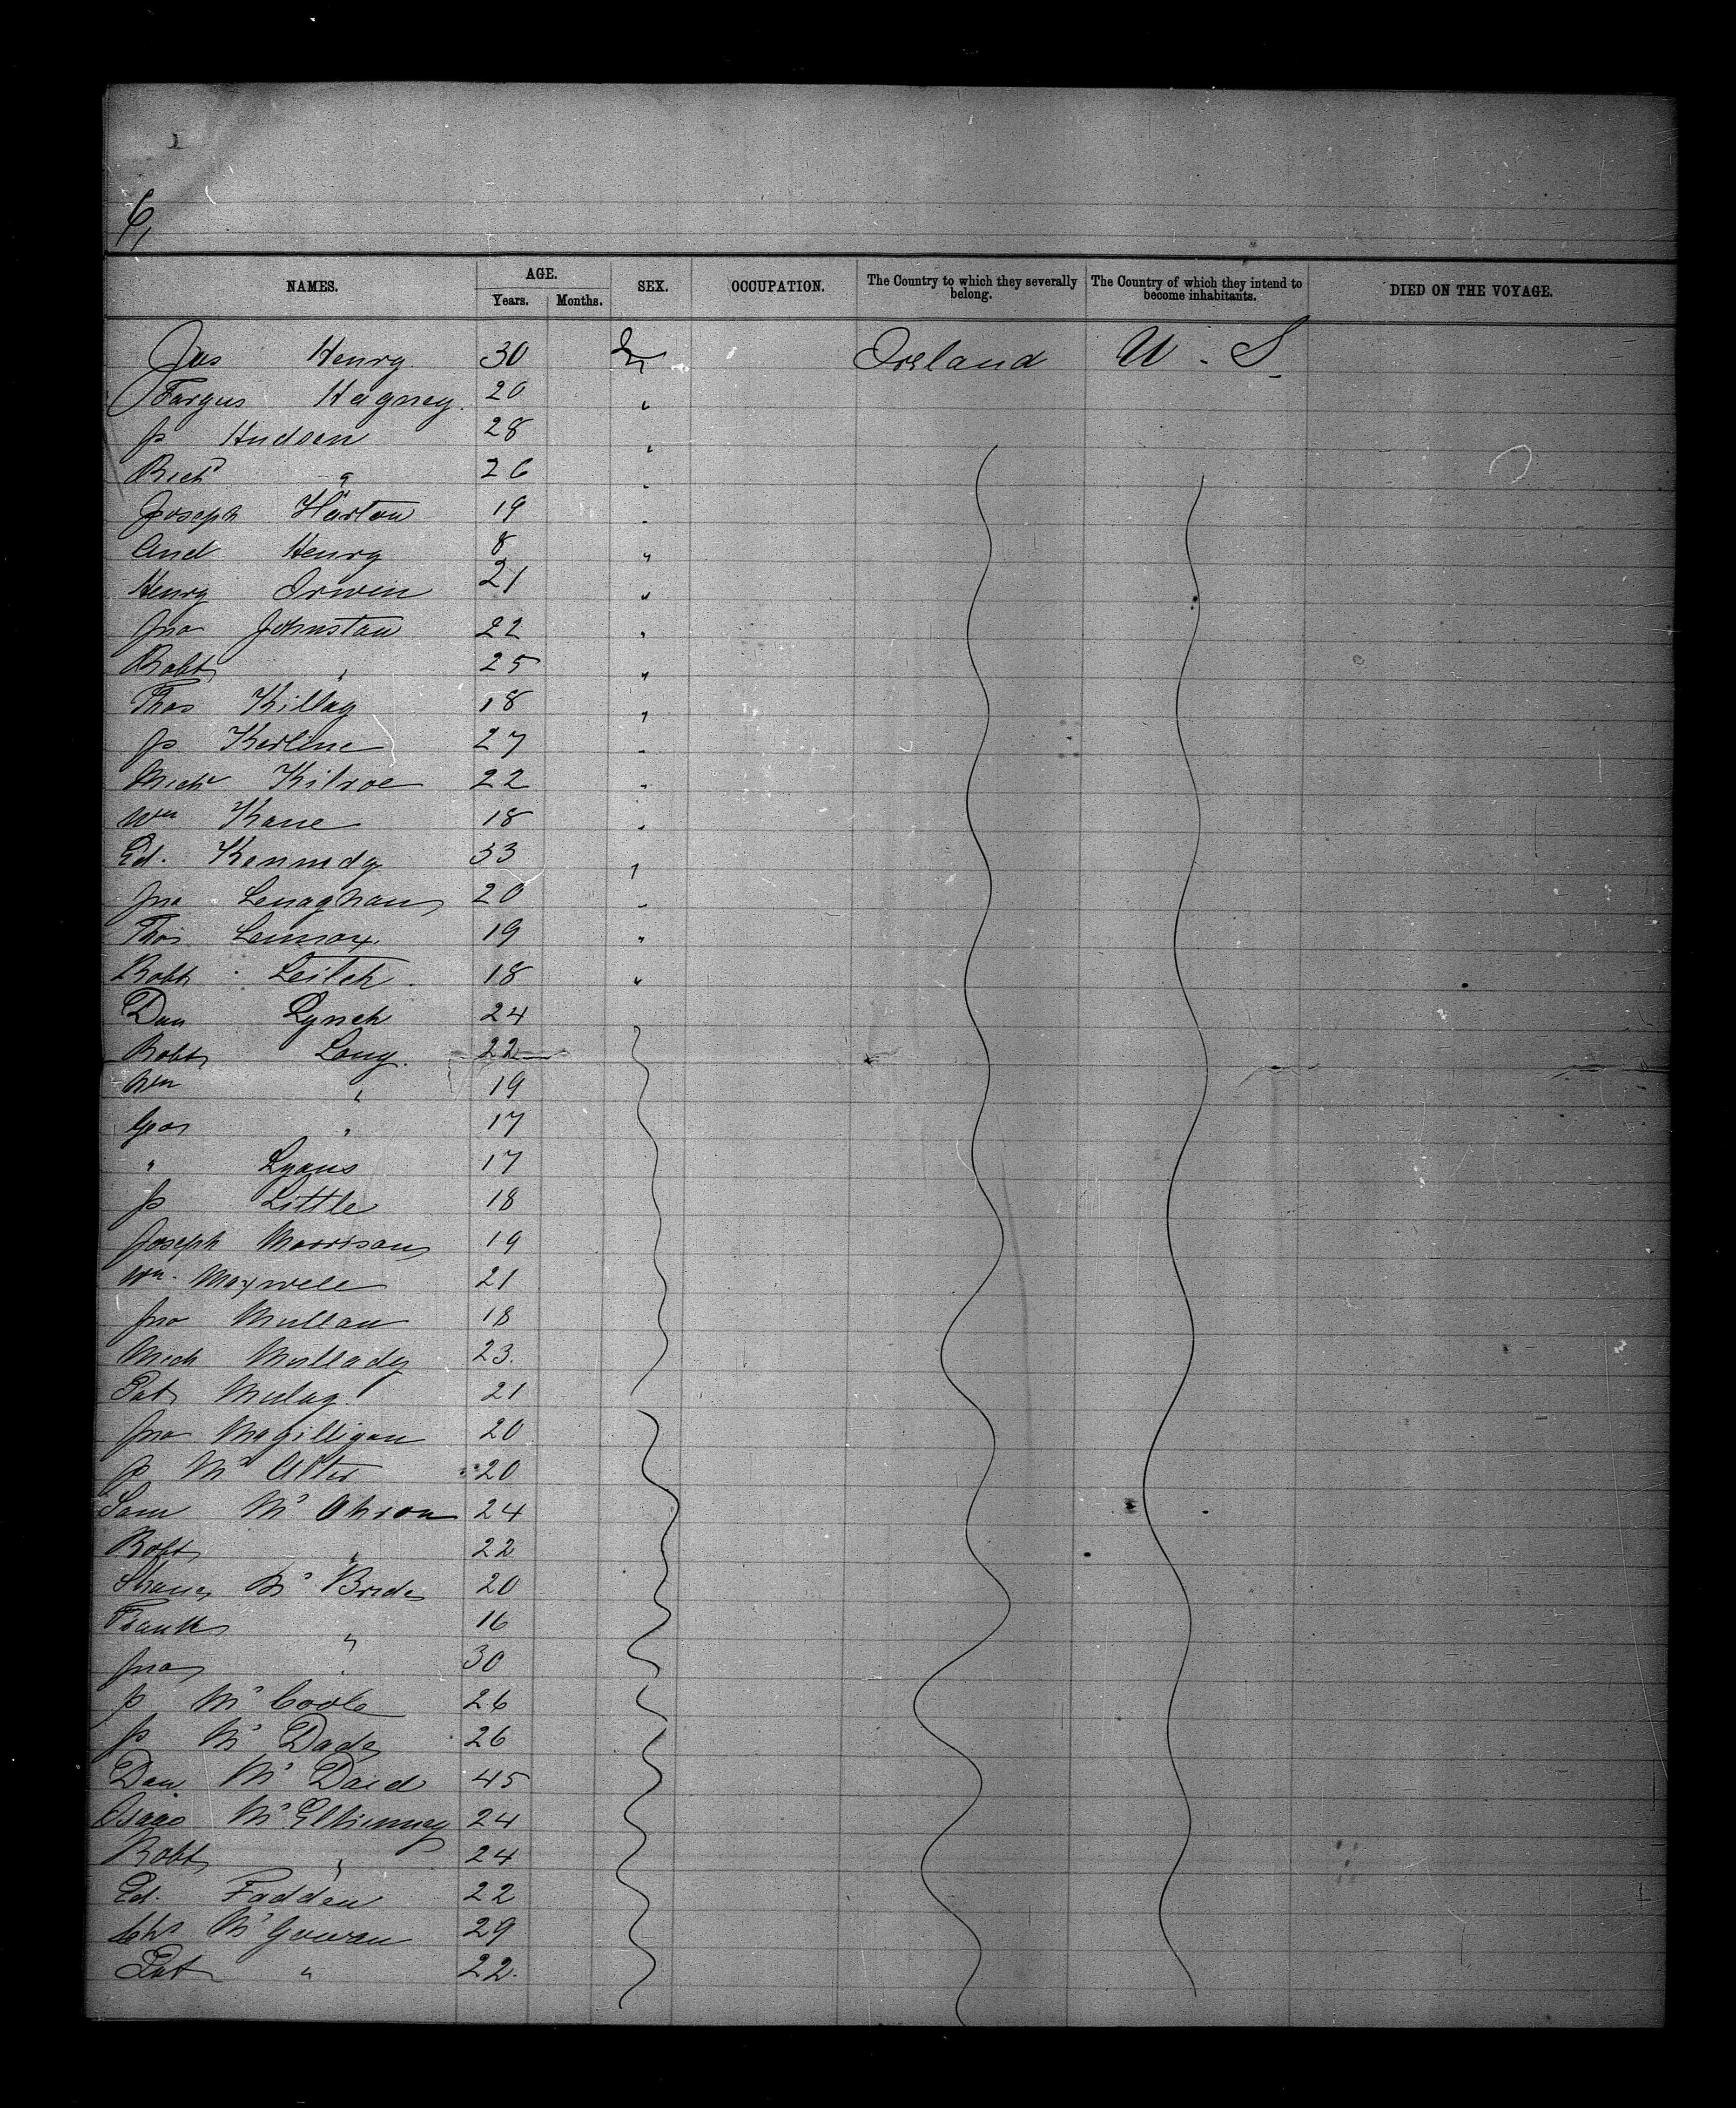 6,
NAMES. AGE. Years. Months. SEX. OCCUPATION. The Country to which they severally belong. The Country of which they intend to become inhabitants. DIED ON THE VOYAGE.
Jas Henry 30 Ireland U. S.
Fargus Hagney 20 "
Js Hudson 28 "
Richd " 26 "
Joseph Harton 19 "
And Henry 8 "
Henry Irwin 21 "
Jno Johnston 22 "
Robt " 25 "
Thos Killay 18 "
Js Kerline 27 "
Michl Kilroe 22 "
Wm Kane 18 "
Ed. Kennedy 33 "
Jno Lenaghan 20 "
Thos Lennox. 19 "
Robt Leitch. 18 "
Dan Lynch 24
Robt Long. 22
Wm " 19
Geo "  17
" Lyons 17
Js Little 18
Joseph Morrison 19
Wm. Maxwell 21
Jno Mullan 18
Mich Mullady 23.
Pat Mulay 21
Jno Magilligan 20
Js Mc 20
Sam Mc 24
Robt " 22
Mc Bride 20
Frank " 16
Jno " 30
Js Mc Cool 26
Js Mc Dade 26
Dan Mc Daid 45
Isaac Mc Elhinney 24
Robt " 24
Ed. Fadden 22
Chs Mc Gowan 29
Pat " 22.